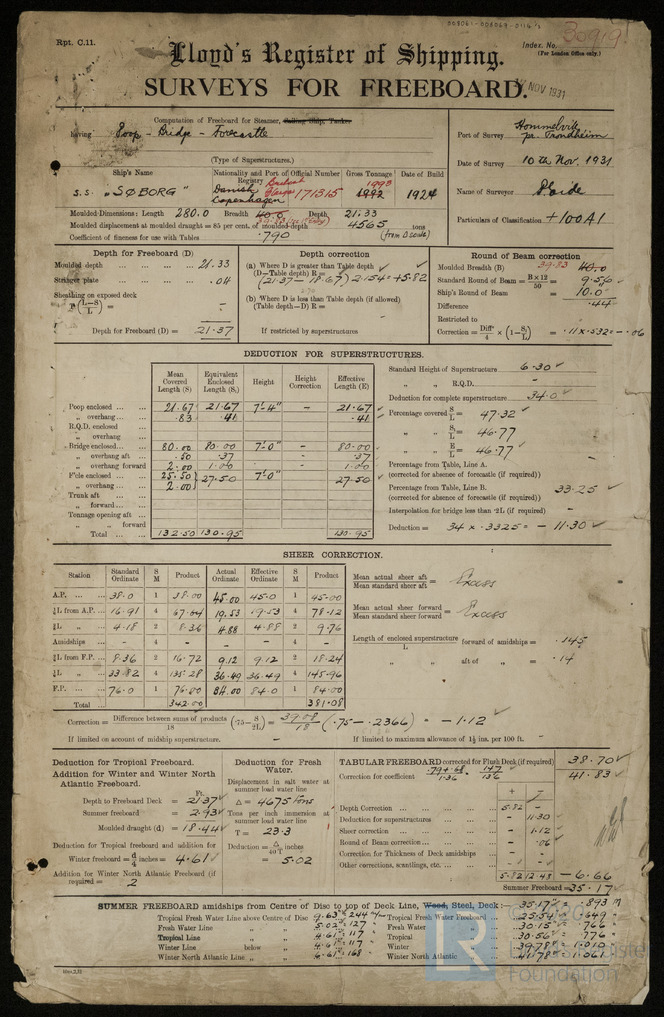 Rpt. C.11.
008061-008069-0116 1/2
30919
Index. No.
(For London Office only.)
Lloyd's Register of Shipping.
SURVEYS FOR FREEBOARD.
NOV 1931
Computation of Freeboard for Steamer, Sailing Ship, Tanker
having Poop - Bridge - Forecastle
(Type of Superstructures.)
Port of Survey Hommelvik pr. Trondheim
Date of Survey 10th Nov. 1931
Name of Surveyor
Particulars of Classification +100A1
Ship's Name Nationality and Port of Registry Official Number Gross Tonnage Date of Build
S.S. "SØBORG" Danish Copenhagen British 171315 1992 1993 1924
Moulded Dimensions: Length 280.0 Breadth 40.0 39.83 Depth 21.33
Moulded displacement at moulded draught = 85 per cent. of moulded depth 4565 tons
Coefficient of fineness for use with Tables .790 (from D scale)
Depth for Freeboard (D)
Moulded depth ... 21.33
Stringer plate ... .04
Sheathing on exposed deck
T (L-S/L) = -
Depth for Freeboard (D) = 21.37
Depth correction
(a) Where D is greater than Table depth
(D-Table depth) R =
(21.37 - 18.67) 2.154 = +5.82
(b) Where D is less than Table depth (if allowed)
(Table depth-D) R =
If restricted by superstructures
Round of Beam correction
Moulded Breadth (B) 39.83 40.0
Standard Round of Beam = B×12/50 = 9.56
Ship's Round of Beam = 10.0
Difference .44
Restricted to
Correction = Diffce/4 × (1-S₁/L) = .11 × .532 = -.06
DEDUCTION FOR SUPERSTRUCTURES.
Mean Covered Length (S) Equivalent Enclosed Length (S₁) Height Height Correction Effective Length (E)
Poop enclosed 21.67 21.67 7'-4" - 21.67
" overhang .83 .41 .41
R.Q.D. enclosed
" overhang
Bridge enclosed 80.00 80.00 7'-0" - 80.00
" overhang aft .50 .37 .37
" overhang forward 2.00 1.00 1.00
F'cle enclosed 25.50 27.50 7'-0" 27.50
" overhang 2.00
Trunk aft
" forward
Tonnage opening aft
" " forward
Total 132.50 130.95 130.95
Standard Height of Superstructure 6.30
" " R.Q.D. -
Deduction for complete superstructure 34.0
Percentage covered S/L = 47.32
" " S₁/L = 46.77
" " E/L = 46.77
Percentage from Table, Line A.
(corrected for absence of forecastle (if required))
Percentage from Table, Line B. 33.25
(corrected for absence of forecastle (if required))
Interpolation for bridge less than ·2L (if required) -
Deduction = 34 × .3325 = - 11.30
SHEER CORRECTION.
Station Standard Ordinate S M Product Actual Ordinate Effective Ordinate S M Product
A.P. 38.0 1 38.00 45.00 45.0 1 45.00
⅙L from A.P. 16.91 4 67.64 19.53 19.53 4 78.12
⅓L " 4.18 2 8.36 4.88 4.88 2 9.76
Amidships - 4 - - 4 -
⅓L from F.P. 8.36 2 16.72 9.12 9.12 2 18.24
⅙L " 33.82 4 135.28 36.49 36.49 4 145.96
F.P. 76.0 1 76.00 84.00 84.0 1 84.00
Total 342.00 381.08
Mean actual sheer aft / Mean standard sheer aft = Excess
Mean actual sheer forward / Mean standard sheer forward = Excess
Length of enclosed superstructure / L forward of amidships = .145
" aft of " = .14
Correction = Difference between sums of products / 18 (·75-S/2L) = 39.08/18 (.75 - .2366) = - 1.12
If limited on account of midship superstructure.
If limited to maximum allowance of 1½ ins. per 100 ft.
Deduction for Tropical Freeboard.
Addition for Winter and Winter North Atlantic Freeboard.
Ft.
Depth to Freeboard Deck = 21.37
Summer freeboard = 2.93
Moulded draught (d) = 18.44
Deduction for Tropical freeboard and addition for
Winter freeboard = d/4 inches = 4.61
Addition for Winter North Atlantic Freeboard (if required) = 2
Deduction for Fresh Water.
Displacement in salt water at summer load water line
Δ = 4675 tons
Tons per inch immersion at summer load water line
T = 23.3
Deduction = Δ/40T inches
= 5.02
TABULAR FREEBOARD corrected for Flush Deck (if required) 38.70
Correction for coefficient .79+.68/1.36 = 1.47/1.36 41.83
+ -
Depth Correction 5.82 -
Deduction for superstructures - 11.30
Sheer correction - 1.12
Round of Beam correction - .06
Correction for Thickness of Deck amidships - -
Other corrections, scantlings, etc. - -
5.82 12.48 - 6.66
Summer Freeboard = 35.17
SUMMER FREEBOARD amidships from Centre of Disc to top of Deck Line, Wood, Steel, Deck:- 35.17" = .893 m
Tropical Fresh Water Line above Centre of Disc 9.63" = 244 m/m Tropical Fresh Water Freeboard 25.54" = 649
Fresh Water Line " " 5.02" = 127 Fresh Water " 30.15" = 766
Tropical Line " " 4.61" = 117 Tropical " 30.56" = 776
Winter Line below " 4.61" = 117 Winter " 39.78" = 1.010
Winter North Atlantic Line " " 6.61" = 168 Winter North Atlantic " 41.78" = 1.061
LR
Foundation